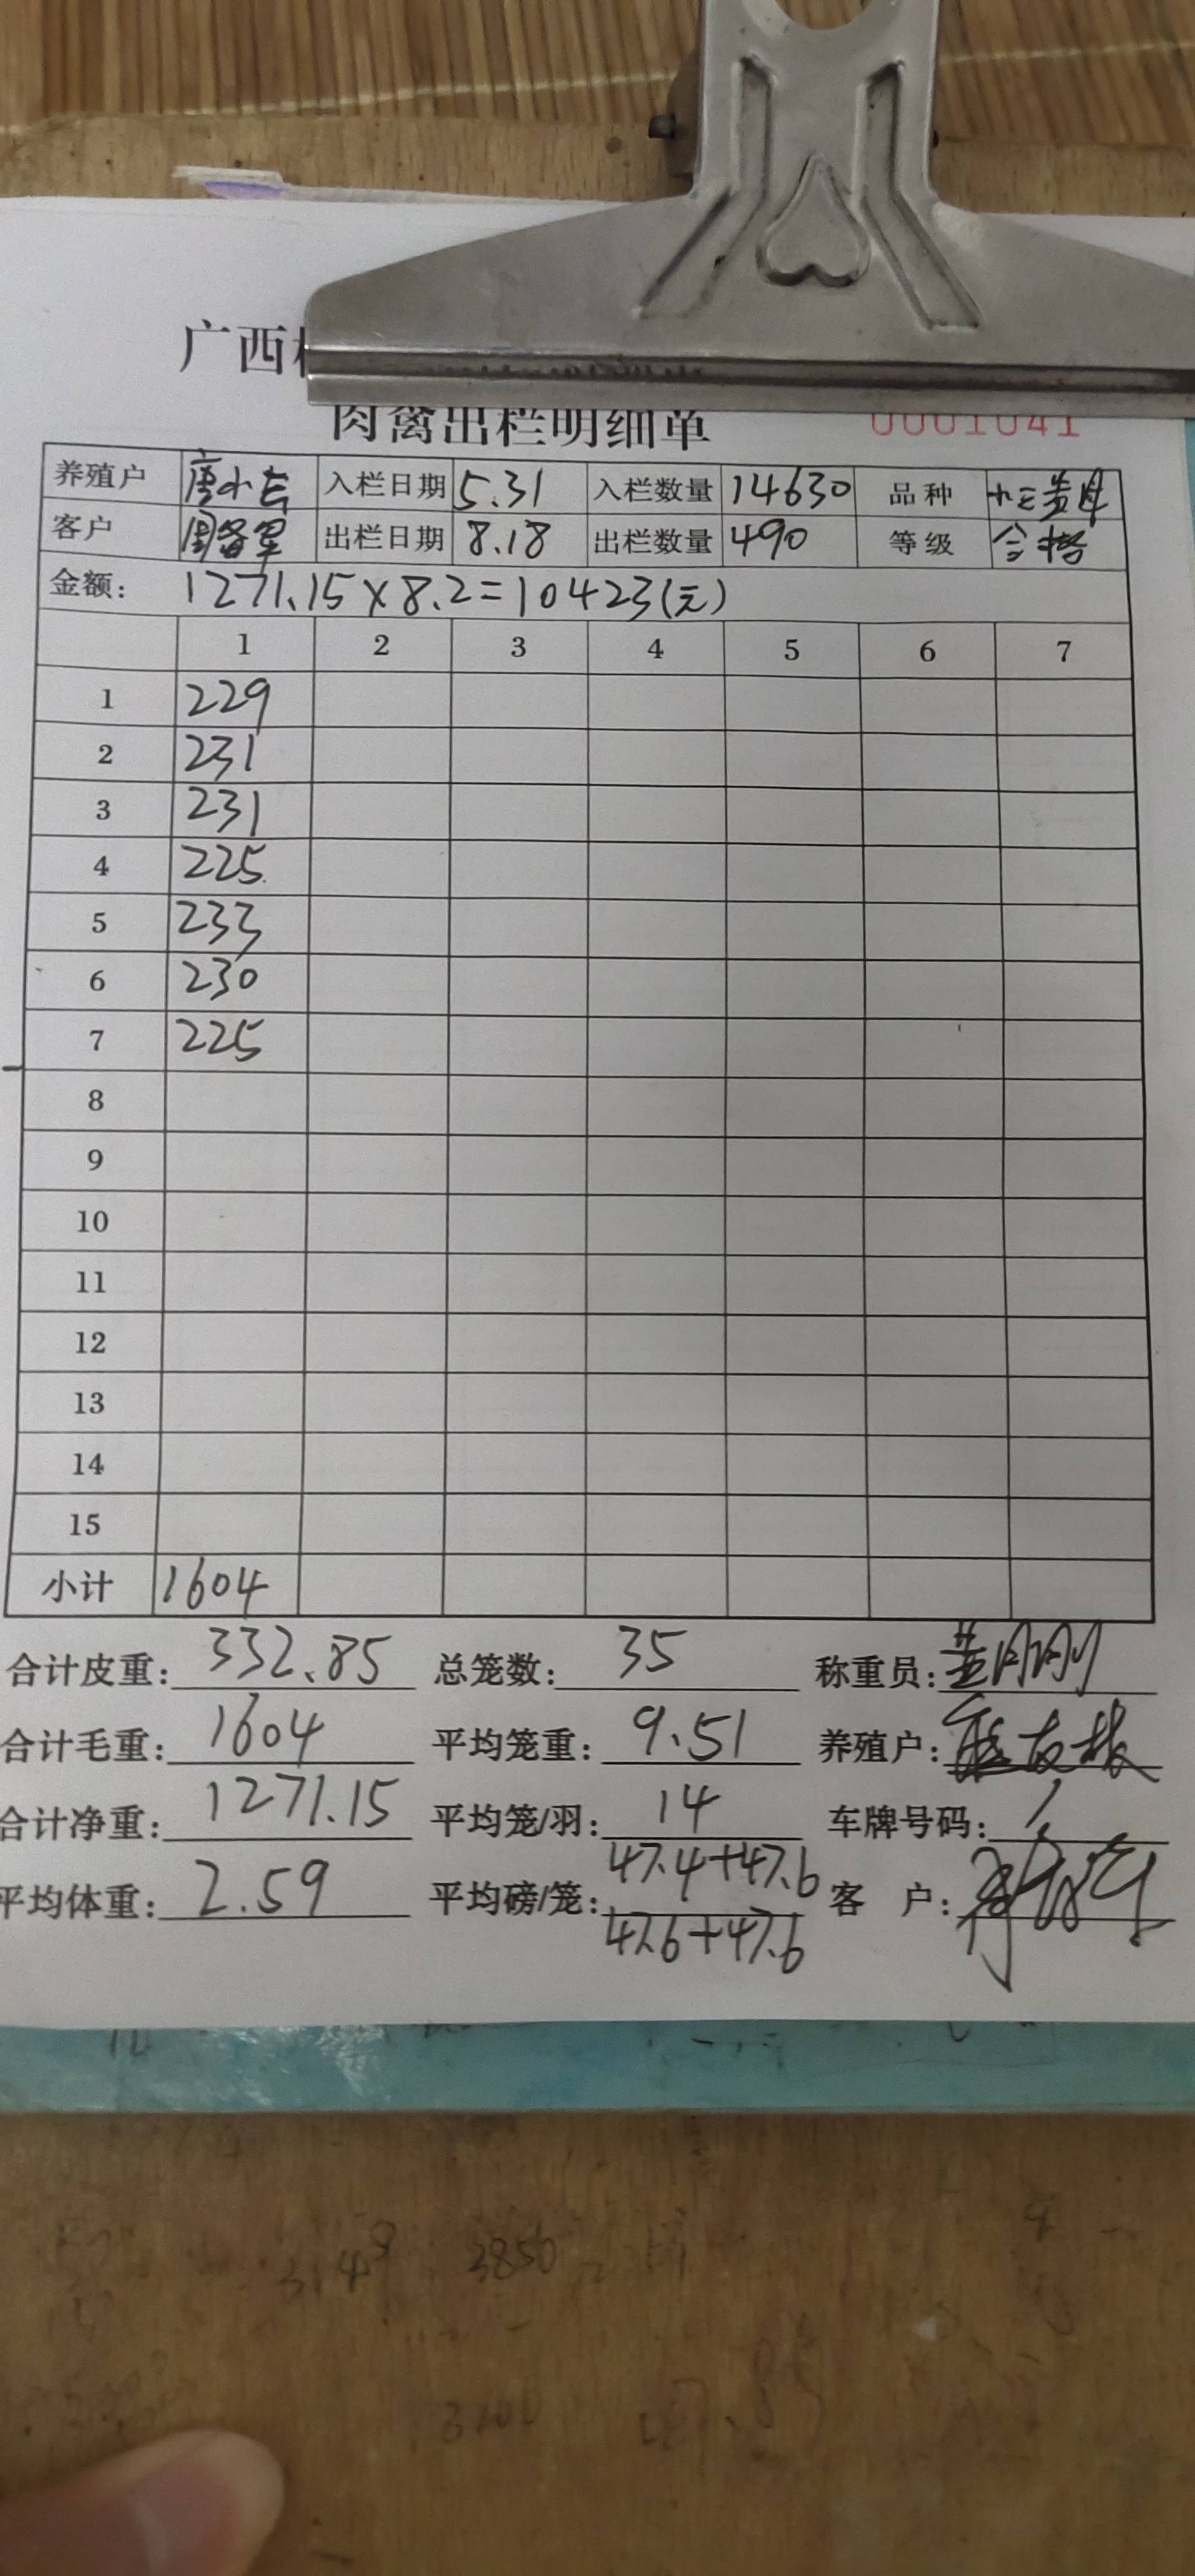 广西
肉禽出栏明细单 0001041
养殖户 唐小 入栏日期 5.31 入栏数量 14630 品种
客户 出栏日期 8.18 出栏数量 490 等级 合格
金额: 1271.15×8.2=10423(元)
1 2 3 4 5 6 7
1 229
2 231
3 231
4 225
5 233
6 230
7 225
8
9
10
11
12
13
14
15
小计 1604
合计皮重: 332.85 总笼数: 35 称重员:
合计毛重: 1604 平均笼重: 9.51 养殖户:
合计净重: 1271.15 平均笼/羽: 14 车牌号码:
平均体重: 2.59 平均磅/笼: 47.4+47.6 客 户:
47.6+47.6